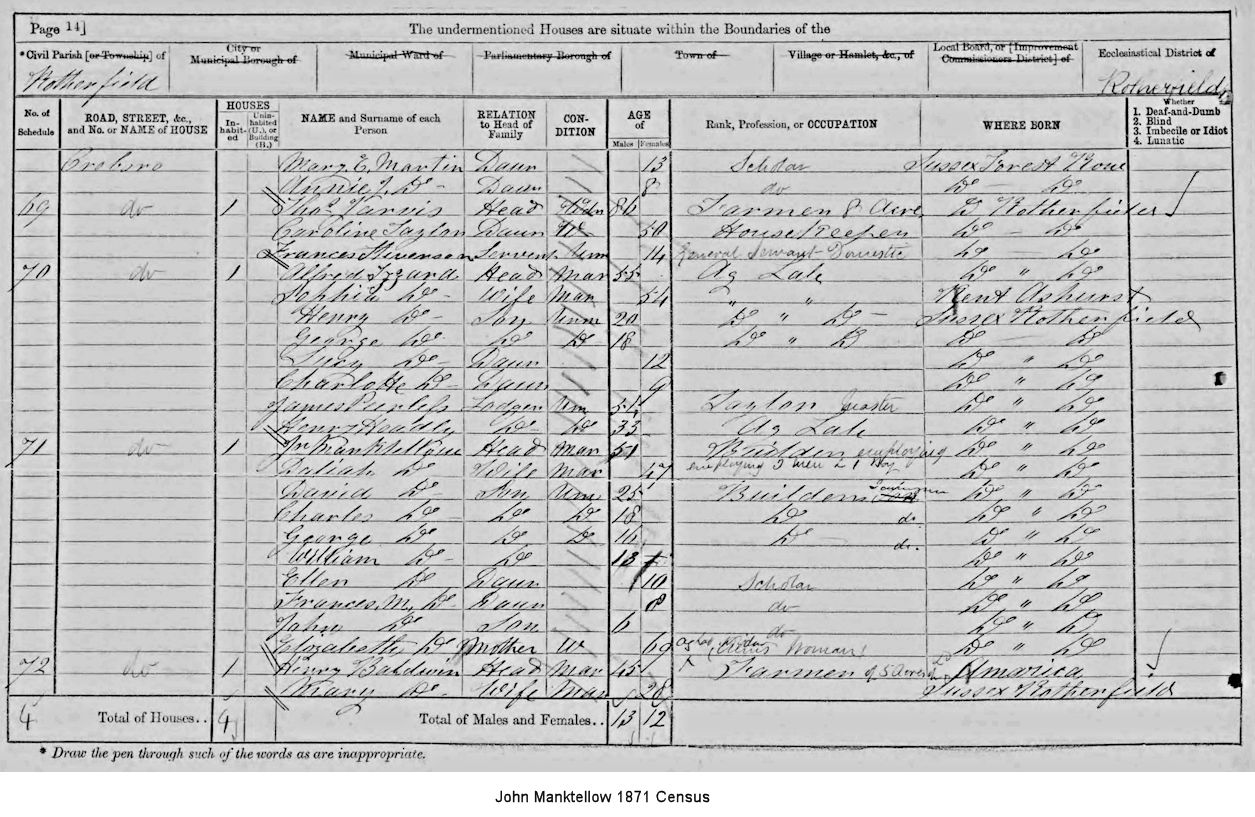 Page 14]
The undermentioned Houses are situate within the Boundaries of the
* Civil Parish [or Township] of City or Municipal Borough of Municipal Ward of Parliamentary Borough of Town of Village or Hamlet, &c., of Local Board, or [Improvement Commissioners District] of Ecclesiastical District of
Rotherfield Rotherfield
No. of Schedule ROAD, STREET, &c., and No. or NAME of HOUSE HOUSES Inhabited Uninhabited (U.), or Building (B.) NAME and Surname of each Person RELATION to Head of Family CONDITION AGE of Males Females Rank, Profession, or OCCUPATION WHERE BORN Whether 1. Deaf-and-Dumb 2. Blind 3. Imbecile or Idiot 4. Lunatic
Mary E. Martin Daur 13 Scholar Sussex Forest Row
Annie J. Do Daur 8 do Do Do
69 do 1 Thos Jarvis Head 86 Farmer 8 Acre Do Rotherfield
Caroline Taylor Daur 50 House Keeper Do Do
Frances Stevenson Servent Unm 14 General Servant Domestic Do Do
70 do 1 Alfred Izzard Head Mar 55 Ag Lab Do " Do
Sophia Do Wife Mar 54 " " Kent Ashurst
Henry Do Son Unm 20 Do " Do Sussex Rotherfield
George Do Do Do 18 Do " Do Do Do
Lucy Do Daur 12 Do " Do
Charlotte Do Daur 9 Do " Do
James Peerless Lodger Um 54 Taylor Master Do " Do
Henry Headley Do Do 33 Ag Lab Do " Do
71 do 1 Jn Manktellow Head Mar 51 Builder employing Do " Do
Do Wife Mar 47 employing 3 Men & 1 Boy Do " Do
David Do Son Um 25 Builder Do " Do
Charles Do Do Do 18 Do do. Do " Do
George Do Do Do 16 Do do. Do " Do
William Do Do 13 Do " Do
Ellen Do Daur 10 Scholar Do " Do
Frances M. Do Daur 8 do Do " Do
John Do Son 6 do Do " Do
Elizabeth Do Mother W 69 Woman Do " Do
72 do 1 Henry Baldwin Head Mar 45 Farmer of 5 Acres America
Mary Do Wife Mar 28 Sussex Rotherfield
4 Total of Houses.. 4 Total of Males and Females.. 13 12
* Draw the pen through such of the words as are inappropriate.
John Manktellow 1871 Census